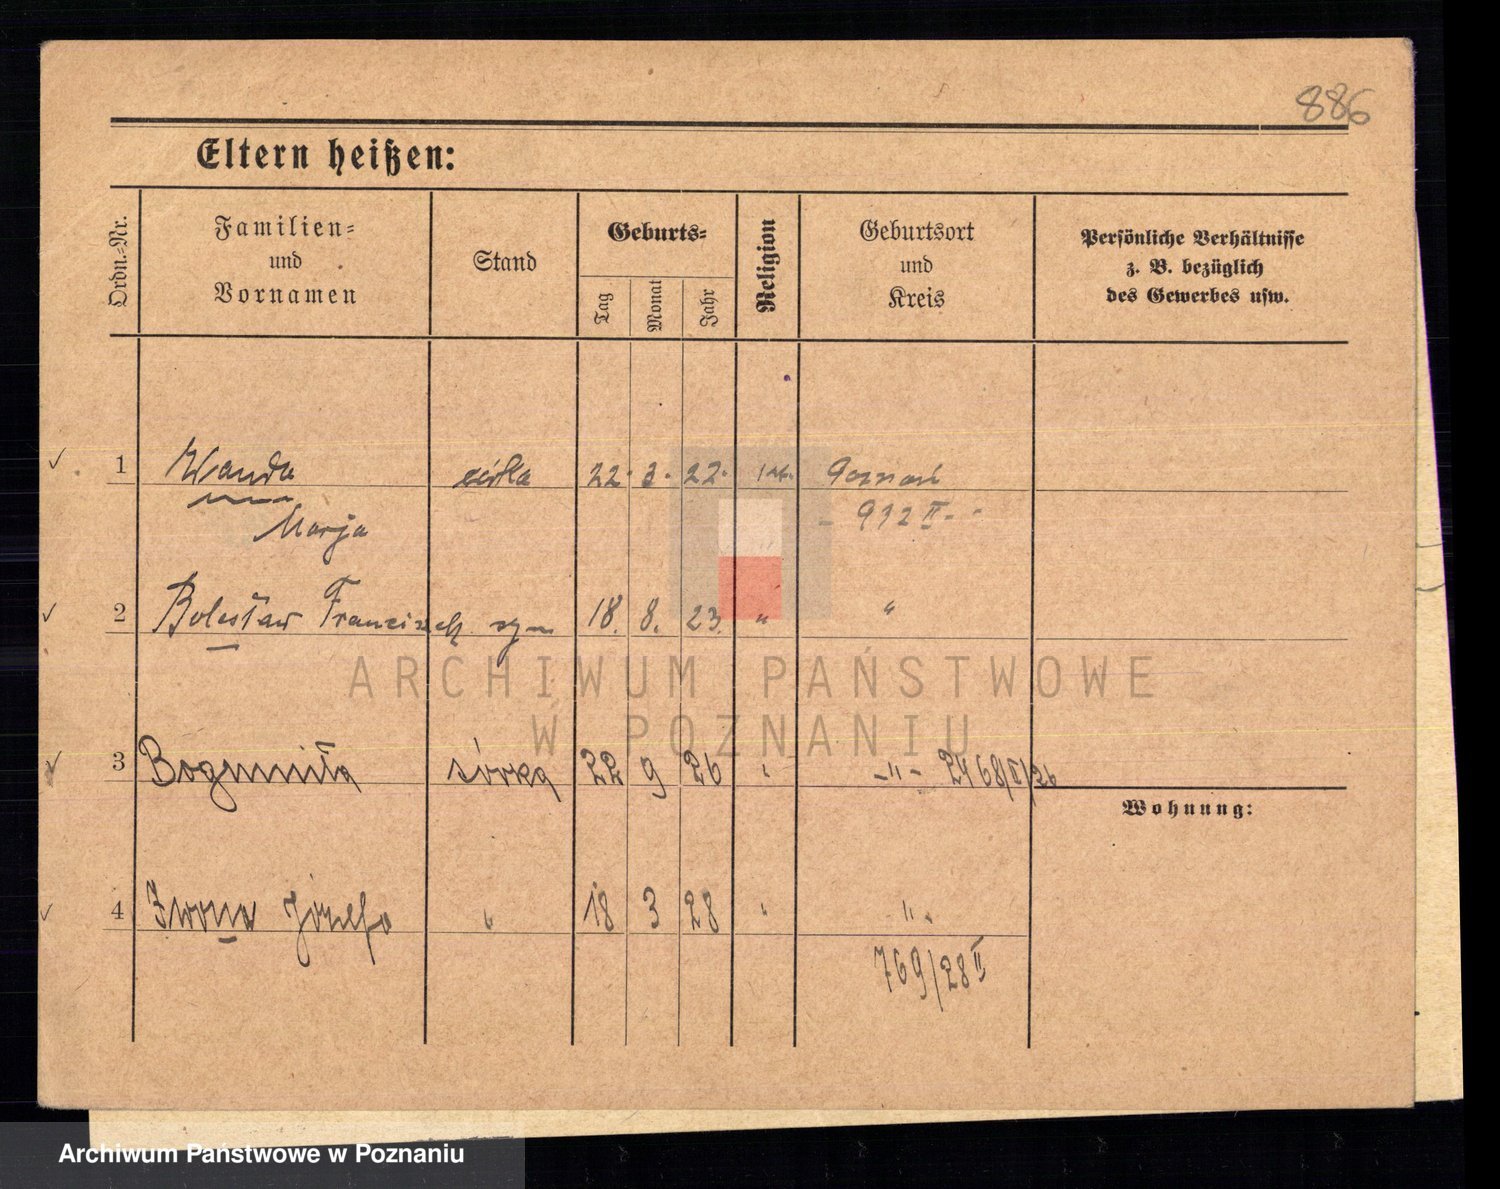 886
Eltern heißen:
Ordn.-Nr.
Familien-
und
Vornamen
Stand
Geburts-
Tag
Monat
Jahr
Religion
Geburtsort
und
Kreis
Persönliche Verhältnisse
z. B. bezüglich
des Gewerbes usw.
1 Wanda córka 22. 3. 22. Poznań
Marja - 912 II - "
2 Bolesław Franciszek syn 18. 8. 23. " "
3 Bogumiła córka 22 9 26 " -"- 2468/II/26
Wohnung:
4 Irena Józefa " 18 3 28 " "
769/28 II
ARCHIWUM PAŃSTWOWE
W POZNANIU
Archiwum Państwowe w Poznaniu